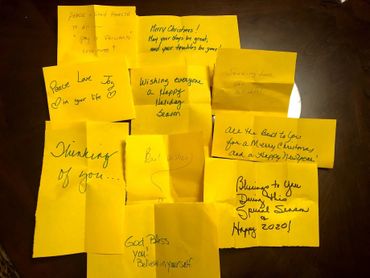 Peace + Good Health
to all
Merry Christmas!
May your days be great,
and your troubles be gone!
Sending Love
Peace Love Joy
in your life
Wishing everyone
a Happy
Holiday
Season
All the Best to You
for a Merry Christmas
and a Happy New Year!
Thinking
of you...
Best wishes
Blessings to You
During this
Special Season
&
Happy 2020!
God Bless
you!
Believe in yourself